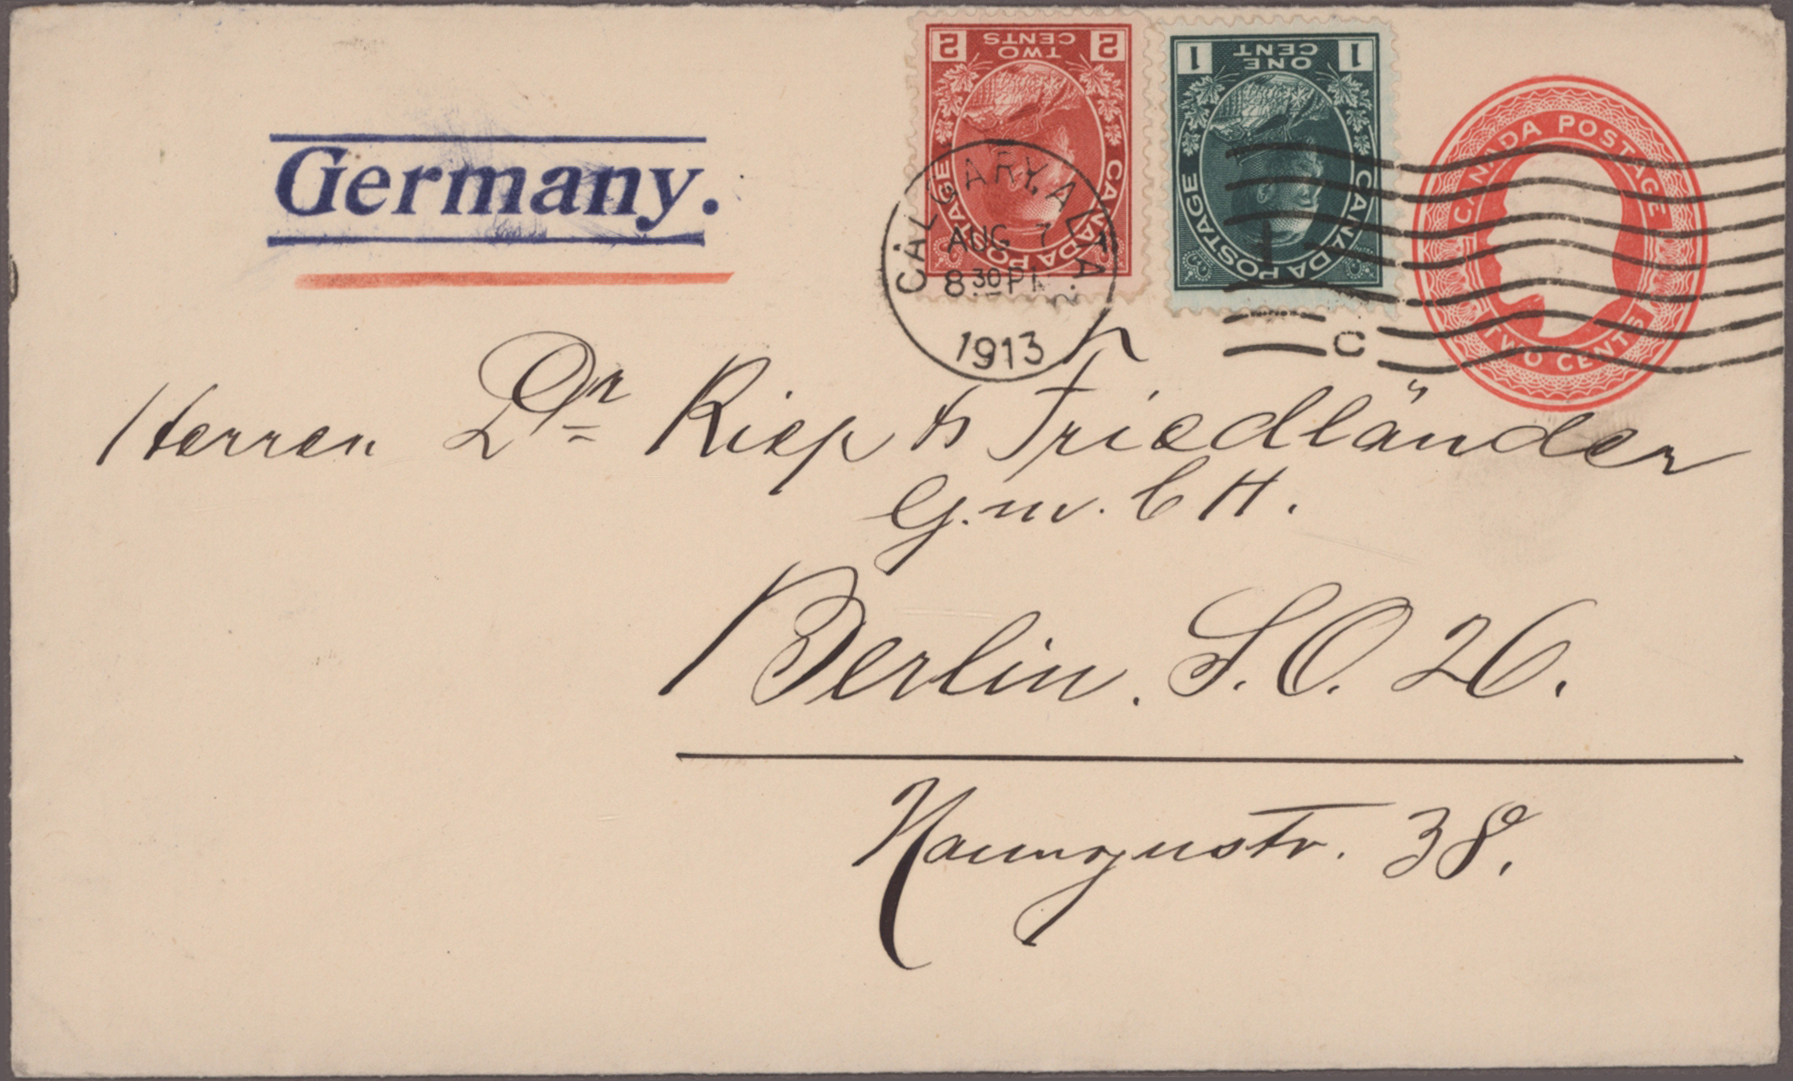 2 TWO CENTS 2
CANADA POSTAGE
1 ONE CENT 1
CANADA POSTAGE
CANADA POSTAGE
TWO CENTS
Germany.
CALGARY, ALTA.
AUG 7
8 30 P
1913
C
Herren Dr Riep & Friedländer
G.m.b H.
Berlin. S.O. 26.
38.